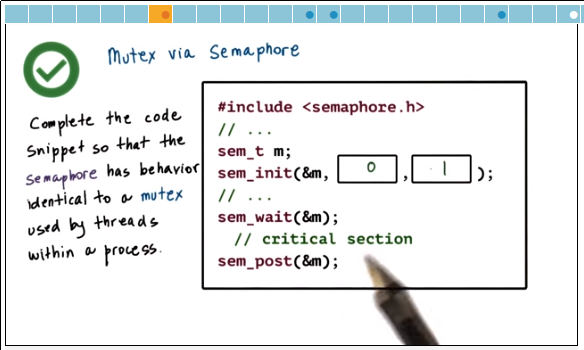 Mutex via Semaphore
Complete the code
snippet so that the
semaphore has behavior
identical to a mutex
used by threads
within a process.
#include <semaphore.h>
// ...
sem_t m;
sem_init(&m, 0 , 1 );
// ...
sem_wait(&m);
// critical section
sem_post(&m);